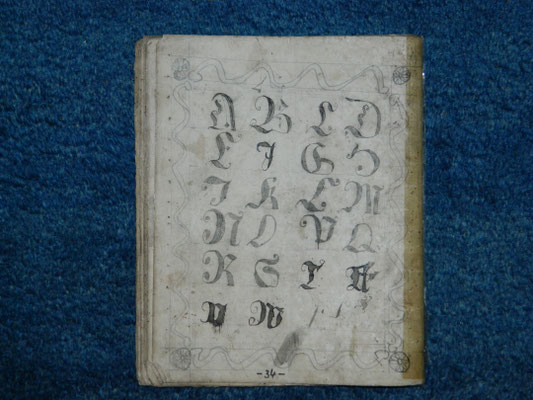 A B C D
E F G H
I K L M
N O P Q
R S T U
V W
-34-